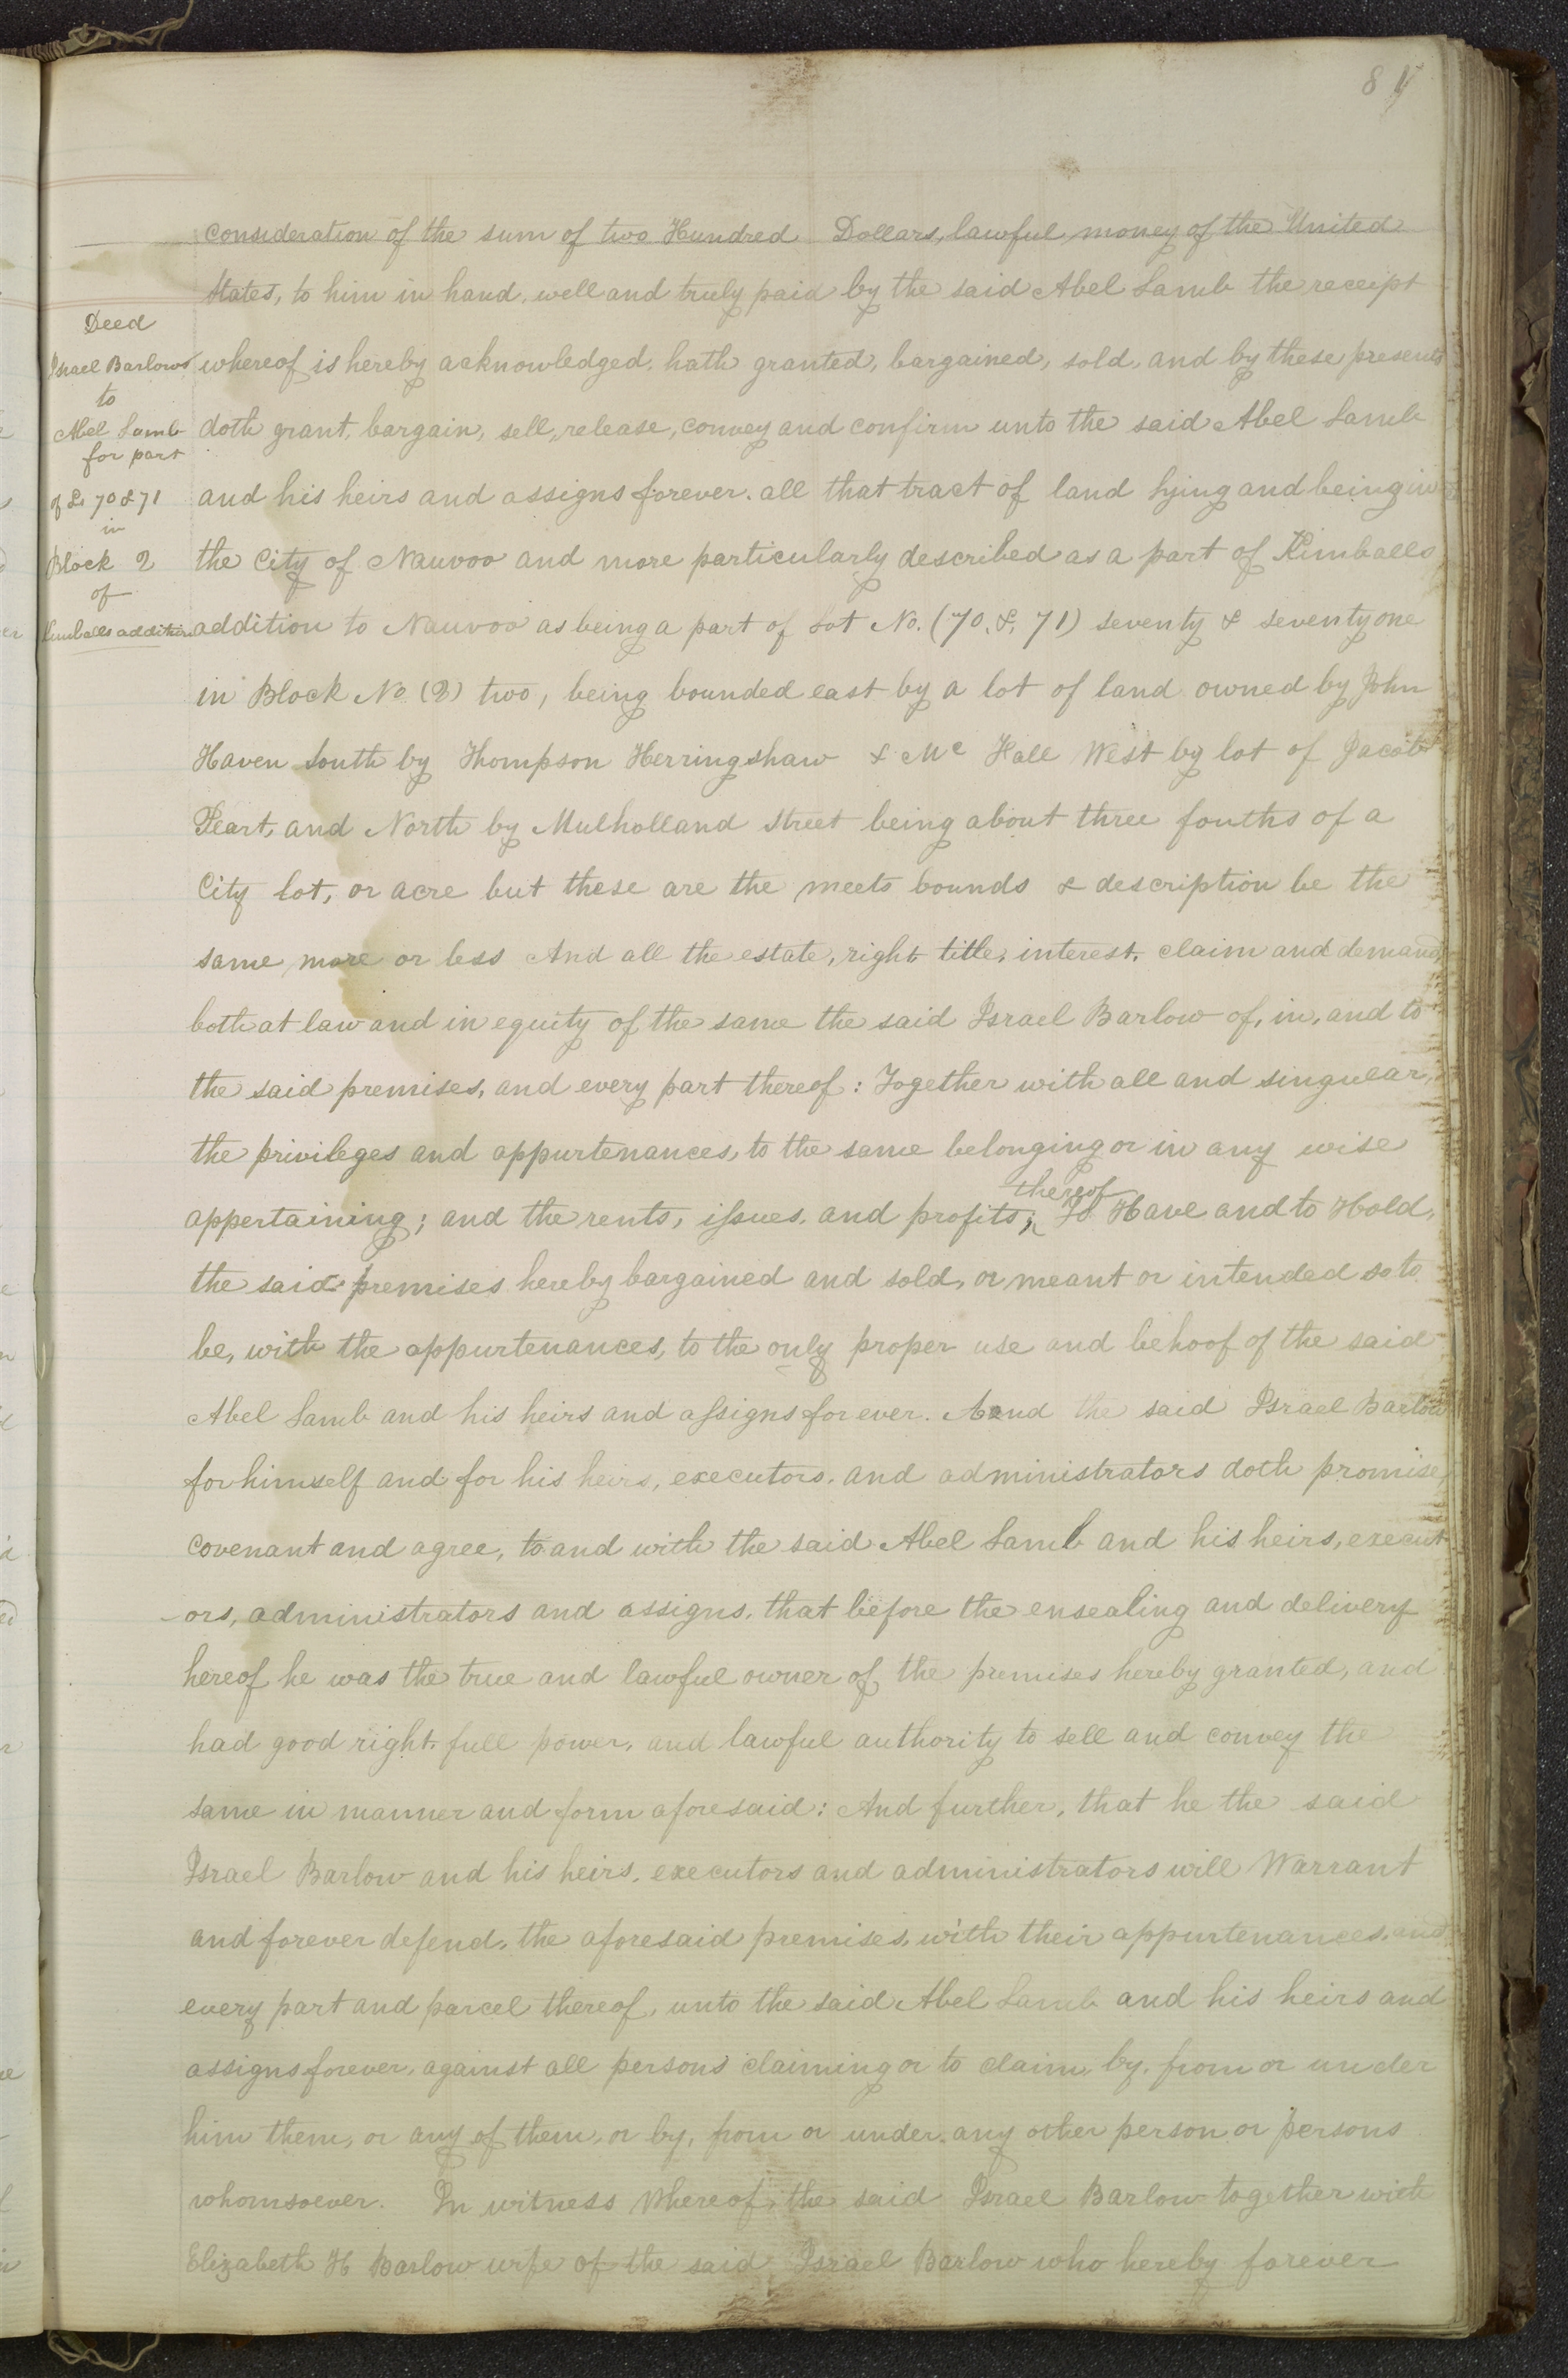 consideration of the sum of two Hundred Dollars, lawful money of the United
States, to him in hand, well and truly paid by the said Abel Lamb the receipt
Deed
Israel Barlows
to
Abel Lamb
for part
of Ls 70 & 71
in
Block 2
of
Kimballs addition
whereof is hereby acknowledged, hath granted, bargained, sold, and by these presents
doth grant, bargain, sell, release, convey and confirm unto the said Abel Lamb
and his heirs and assigns forever. all that tract of land lying and being in
the City of Nauvoo and more particularly described as a part of Kimballs
addition to Nauvoo as being a part of Lot No. (70, &, 71) seventy & seventy one
in Block No (2) two, being bounded east by a lot of land owned by John
Haven South by Thompson Herringshaw & Mc Hall West by lot of Jacob
Peart, and North by Mulholland Street being about three fouths of a
City lot, or acre but these are the meets bounds & description be the
same more or less And all the estate, right title, interest, claim and demand,
both at law and in equity of the same the said Israel Barlow of, in, and to
the said premises, and every part thereof: Together with all and singular,
the privileges and appurtenances, to the same belonging or in any wise
appertaining; and the rents, issues, and profits; thereof To Have and to Hold,
the said premises hereby bargained and sold, or meant or intended so to
be, with the appurtenances, to the only proper use and behoof of the said
Abel Lamb and his heirs and assigns for ever. And the said Israel Barlow
for himself and for his heirs, executors, and administrators doth promise,
covenant and agree, to and with the said Abel Lamb and his heirs, execut
-ors, administrators and assigns, that before the ensealing and delivery
hereof he was the true and lawful owner of the premises hereby granted, and
had good right, full power, and lawful authority to sell and convey the
same in manner and form aforesaid: And further, that he the said
Israel Barlow and his heirs, executors and administrators will Warrant
and forever defend, the aforesaid premises, with their appurtenances, and
every part and parcel thereof, unto the said Abel Lamb and his heirs and
assigns forever, against all persons claiming or to claim, by, from or under
him them, or any of them, or by, from or under any other person or persons
whomsoever. In witness Whereof, the said Israel Barlow together with
Elizabeth H Barlow wife of the said Israel Barlow who hereby forever